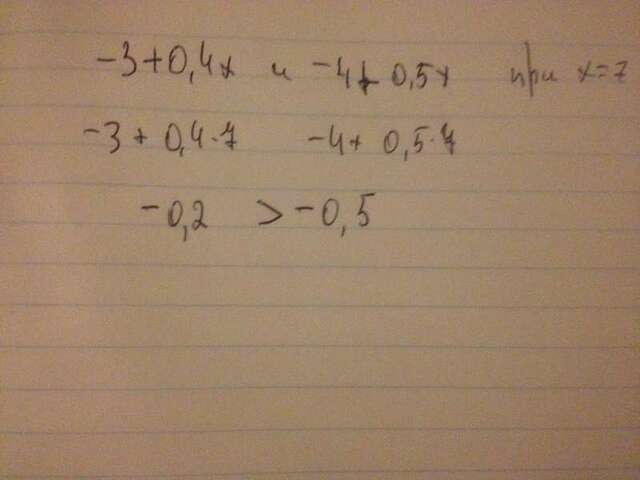 -3+0,4x и -4+0,5x при x=7
-3+0,4·7 -4+0,5·7
-0,2 > -0,5